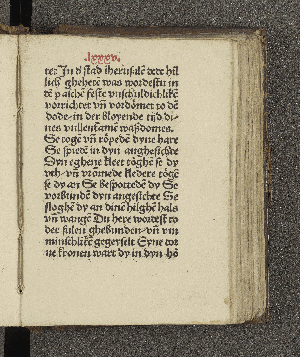 .lxxxv.
ter In d̕ stad iherusalē dede hil
lich gheheten was wordestu in
dē paischē feste vnschuldichlikē
vorrichtet vn̄ vordōmet to dē
dode. in der bloyende tijd di=
nes vullenkamē waßdomes.
Se togē vn̄ rōpedē dyne hare
Se spiedē in dyn anghesichte
Dyn eghene kleet tōghē se dy
vth. vn̄ vrōmede kledere tōgē
se dy an Se bespottedē dy Se
vorbundē dyn angesichte Se
sloghē dy an dinē hilghē hals
vn̄ wangē Du here wordest to
der sulen ghebunden. vn̄ vn
minschlikē gegeyselt Syne dor
ne kronen wart dy in dyn hō